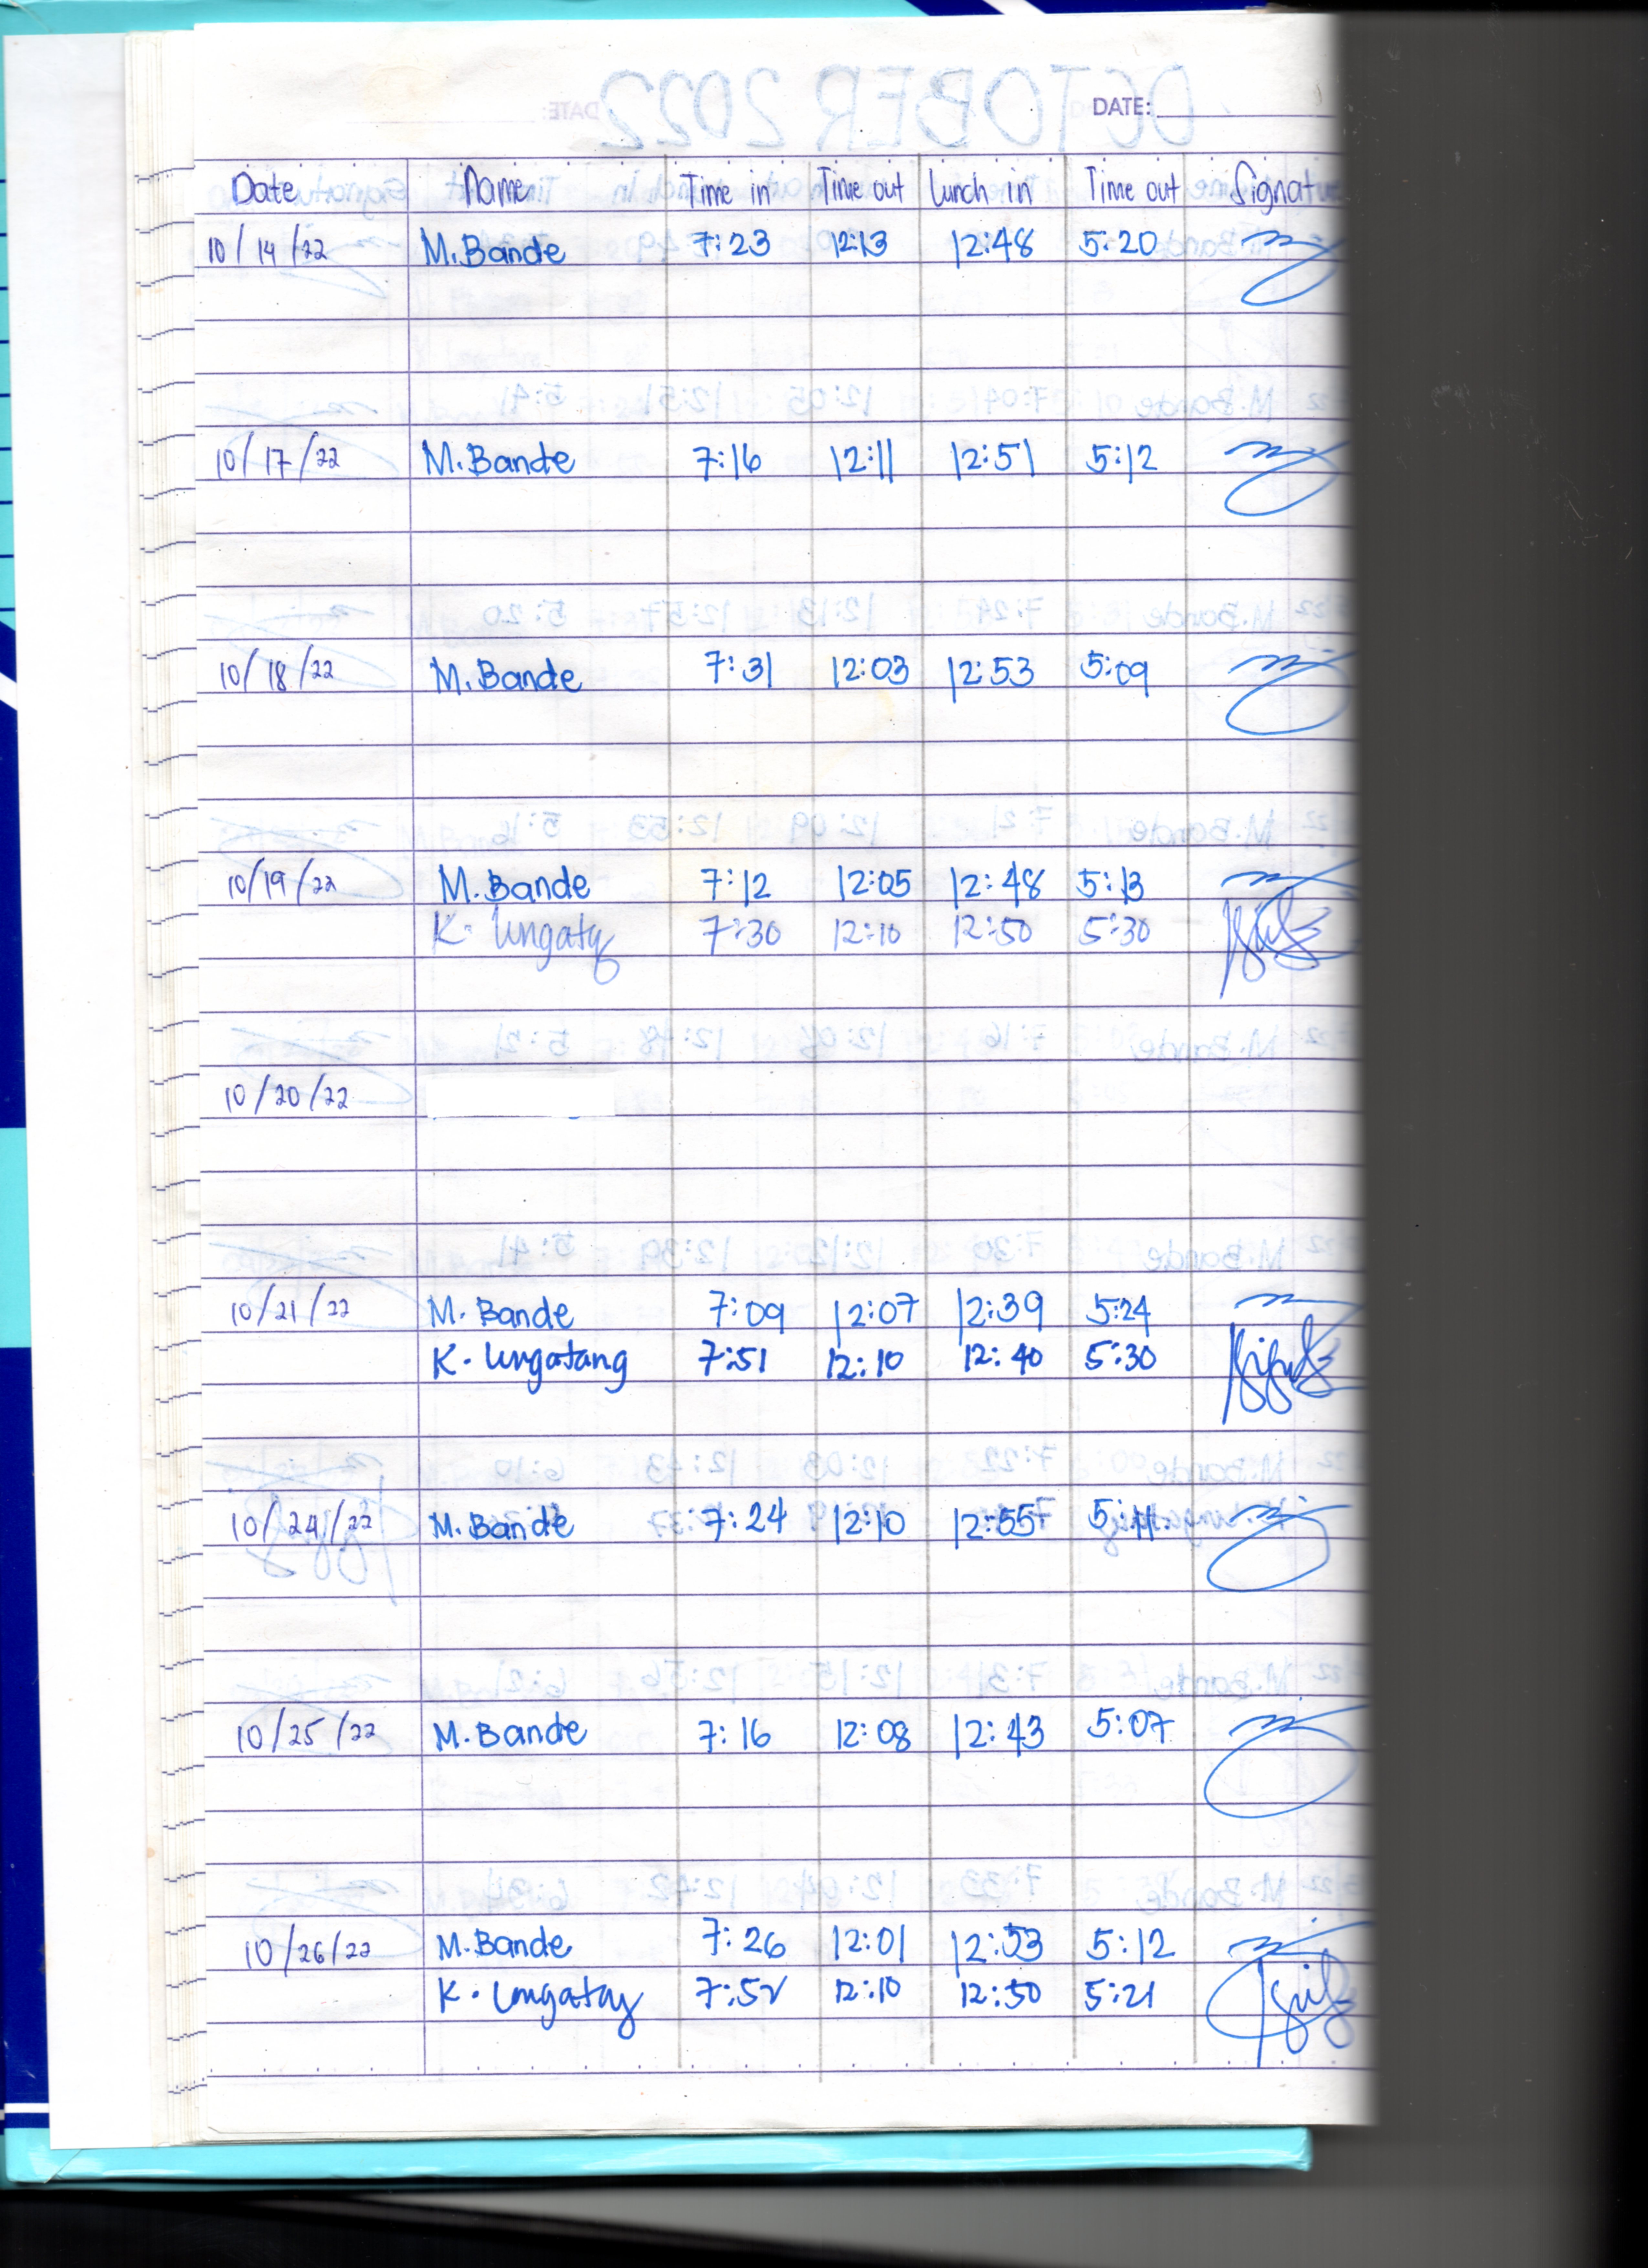 DATE:
Date Name Time in Time out Lunch in Time out Signature
10/14/22 M.Bande 7:23 12:13 12:48 5:20
10/17/22 M.Bande 7:16 12:11 12:51 5:12
10/18/22 M.Bande 7:31 12:03 12:53 5:09
10/19/22 M.Bande 7:12 12:05 12:48 5:13
K. 7:30 12:10 12:50 5:30
10/20/22
10/21/22 M. Bande 7:09 12:07 12:39 5:24
K. Lungatang 7:51 12:10 12:40 5:30
10/24/22 M. Bande 7:24 12:10 12:55 5:11
10/25/22 M. Bande 7:16 12:08 12:43 5:07
10/26/22 M.Bande 7:26 12:01 12:53 5:12
K. 7:52 12:10 12:50 5:21